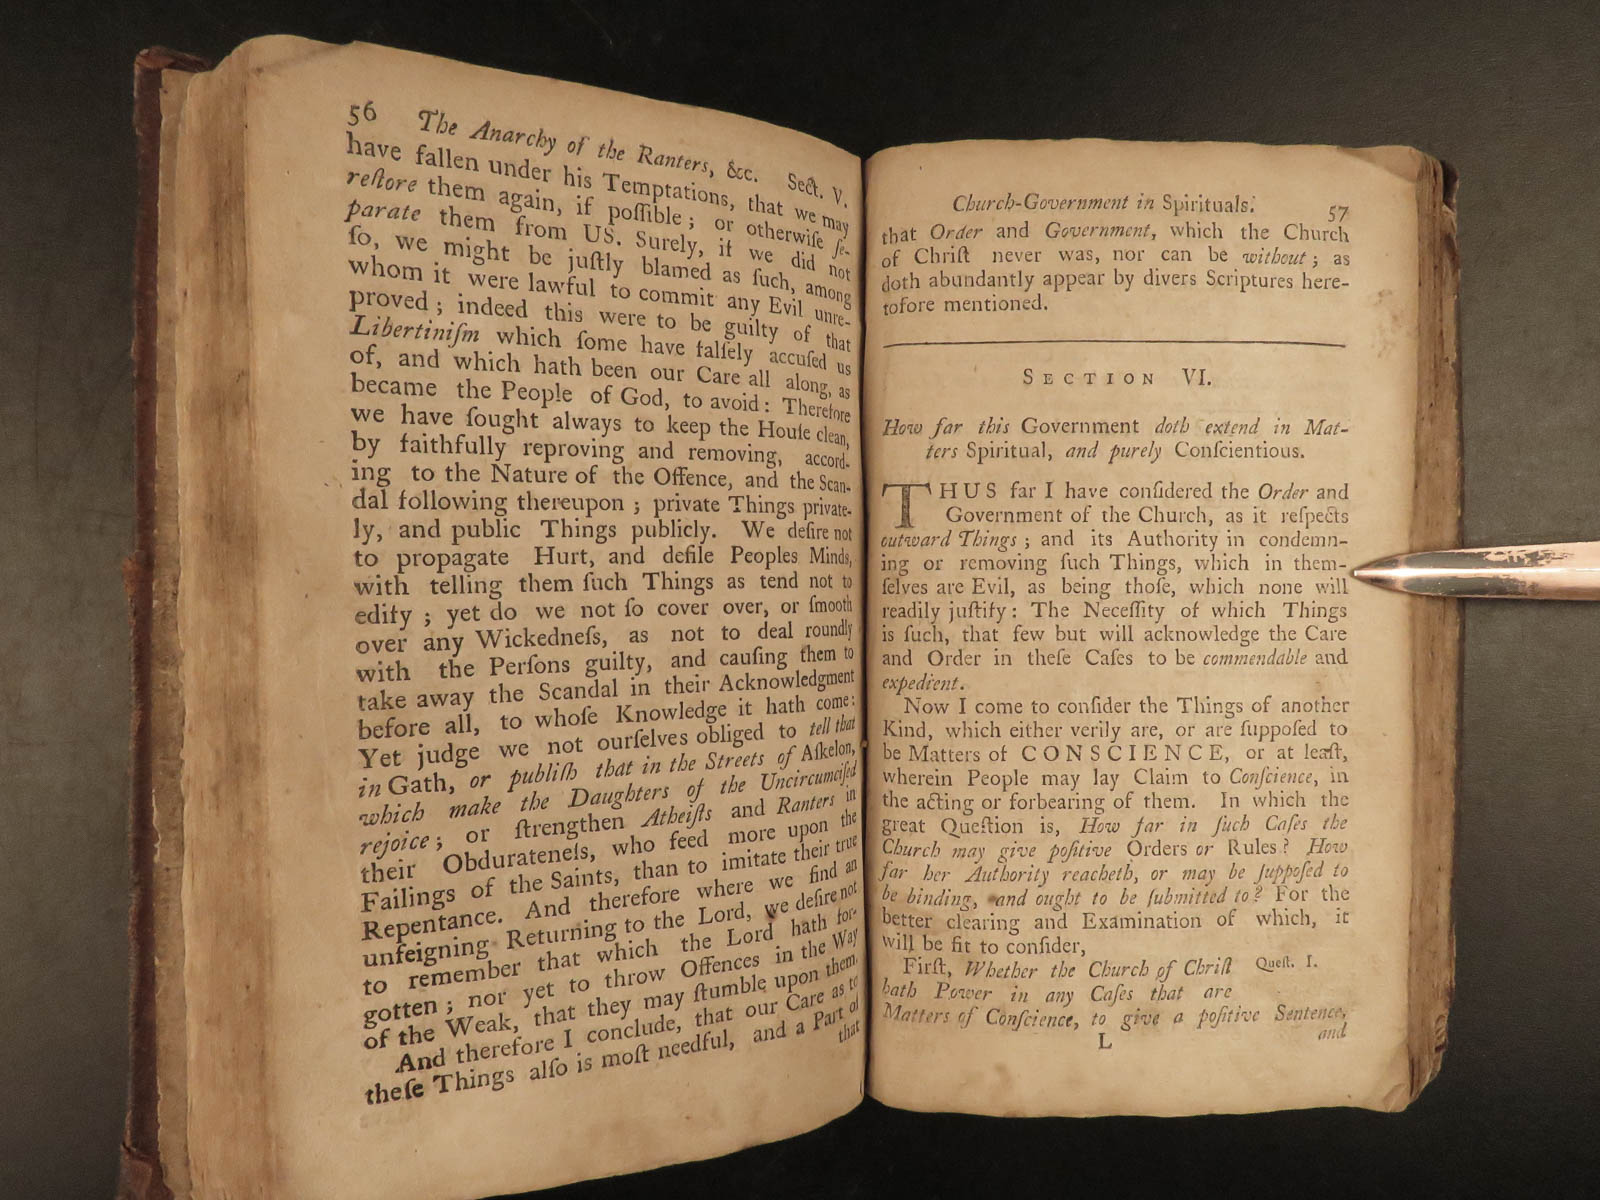 56 The Anarchy of the Ranters, &c. Sect. V.
have fallen under his Temptations, that we may
reſtore them again, if poſſible; or otherwiſe ſe-
parate them from US. Surely, if we did not
ſo, we might be juſtly blamed as ſuch, among
whom it were lawful to commit any Evil unre-
proved; indeed this were to be guilty of that
Libertiniſm which ſome have falſely accuſed us
of, and which hath been our Care all along, as
became the People of God, to avoid: Therefore
we have ſought always to keep the Houſe clean,
by faithfully reproving and removing, accord-
ing to the Nature of the Offence, and the Scan-
dal following thereupon; private Things private-
ly, and public Things publicly. We deſire not
to propagate Hurt, and defile Peoples Minds,
with telling them ſuch Things as tend not to
edify; yet do we not ſo cover over, or ſmooth
over any Wickedneſs, as not to deal roundly
with the Perſons guilty, and cauſing them to
take away the Scandal in their Acknowledgment
before all, to whoſe Knowledge it hath come:
Yet judge we not ourſelves obliged to tell that
in Gath, or publiſh that in the Streets of Aſkelon,
which make the Daughters of the Uncircumciſed
rejoice; or ſtrengthen Atheiſts and Ranters in
their Obdurateneſs, who feed more upon the
Failings of the Saints, than to imitate their true
Repentance. And therefore where we find an
unfeigning Returning to the Lord, we deſire not
to remember that which the Lord hath for-
gotten; nor yet to throw Offences in the Way
of the Weak, that they may ſtumble upon them.
And therefore I conclude, that our Care as to
theſe Things alſo is moſt needful, and a Part of
that
Church-Government in Spirituals. 57
that Order and Government, which the Church
of Chriſt never was, nor can be without; as
doth abundantly appear by divers Scriptures here-
tofore mentioned.
SECTION VI.
How far this Government doth extend in Mat-
ters Spiritual, and purely Conſcientious.
THUS far I have conſidered the Order and
Government of the Church, as it reſpects
outward Things; and its Authority in condemn-
ing or removing ſuch Things, which in them-
ſelves are Evil, as being thoſe, which none will
readily juſtify: The Neceſſity of which Things
is ſuch, that few but will acknowledge the Care
and Order in theſe Caſes to be commendable and
expedient.
Now I come to conſider the Things of another
Kind, which either verily are, or are ſuppoſed to
be Matters of CONSCIENCE, or at leaſt,
wherein People may lay Claim to Conſcience, in
the acting or forbearing of them. In which the
great Queſtion is, How far in ſuch Caſes the
Church may give poſitive Orders or Rules? How
far her Authority reacheth, or may be ſuppoſed to
be binding, and ought to be ſubmitted to? For the
better clearing and Examination of which, it
will be fit to conſider,
Firſt, Whether the Church of Chriſt Queſt. I.
hath Power in any Caſes that are
Matters of Conſcience, to give a poſitive Sentence,
L and